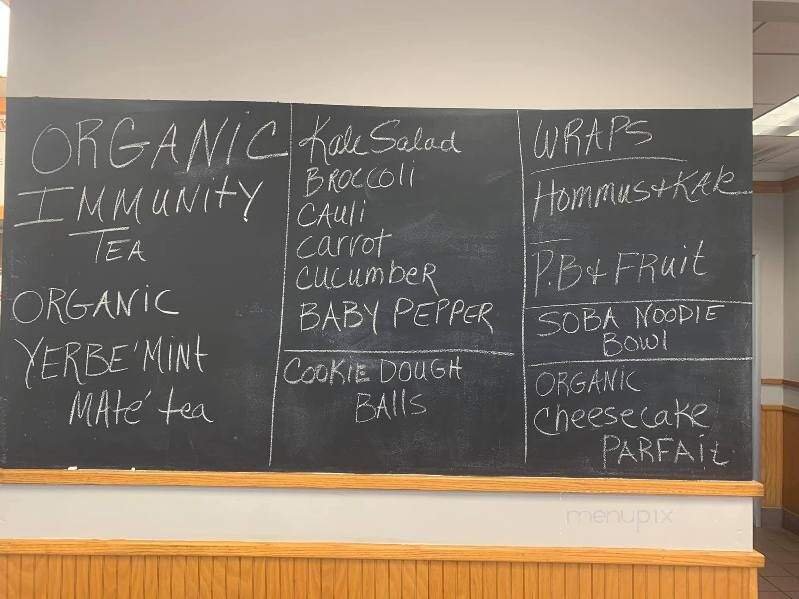 ORGANIC
IMMUNITY
TEA
ORGANIC
YERBE'MINT
MATE' tea
Kale Salad
BROCCOLi
CAULi
Carrot
CUCUMBER
BABY PEPPER
COOKIE DOUGH
BALLS
WRAPS
HOMMUS+KALE
P.B+FRUit
SOBA NOODLE
BOWL
ORGANIC
Cheesecake
PARFAit
menupix